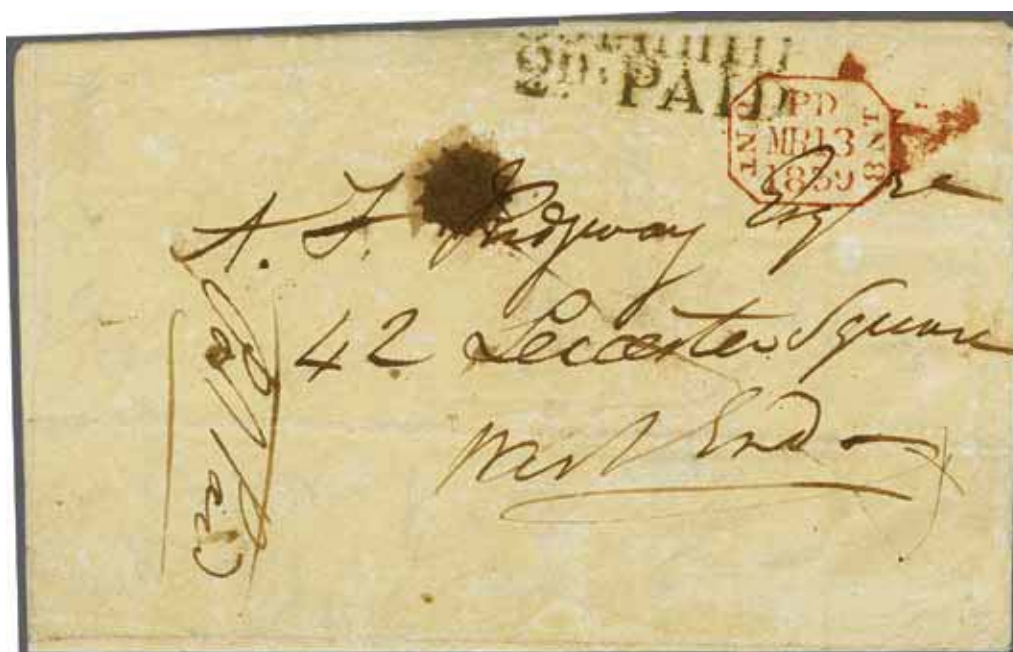 PAID
PD
MR 13
1839
8 NT 8
A. F. Ridgway Esqre
42 Leicester Square
West End